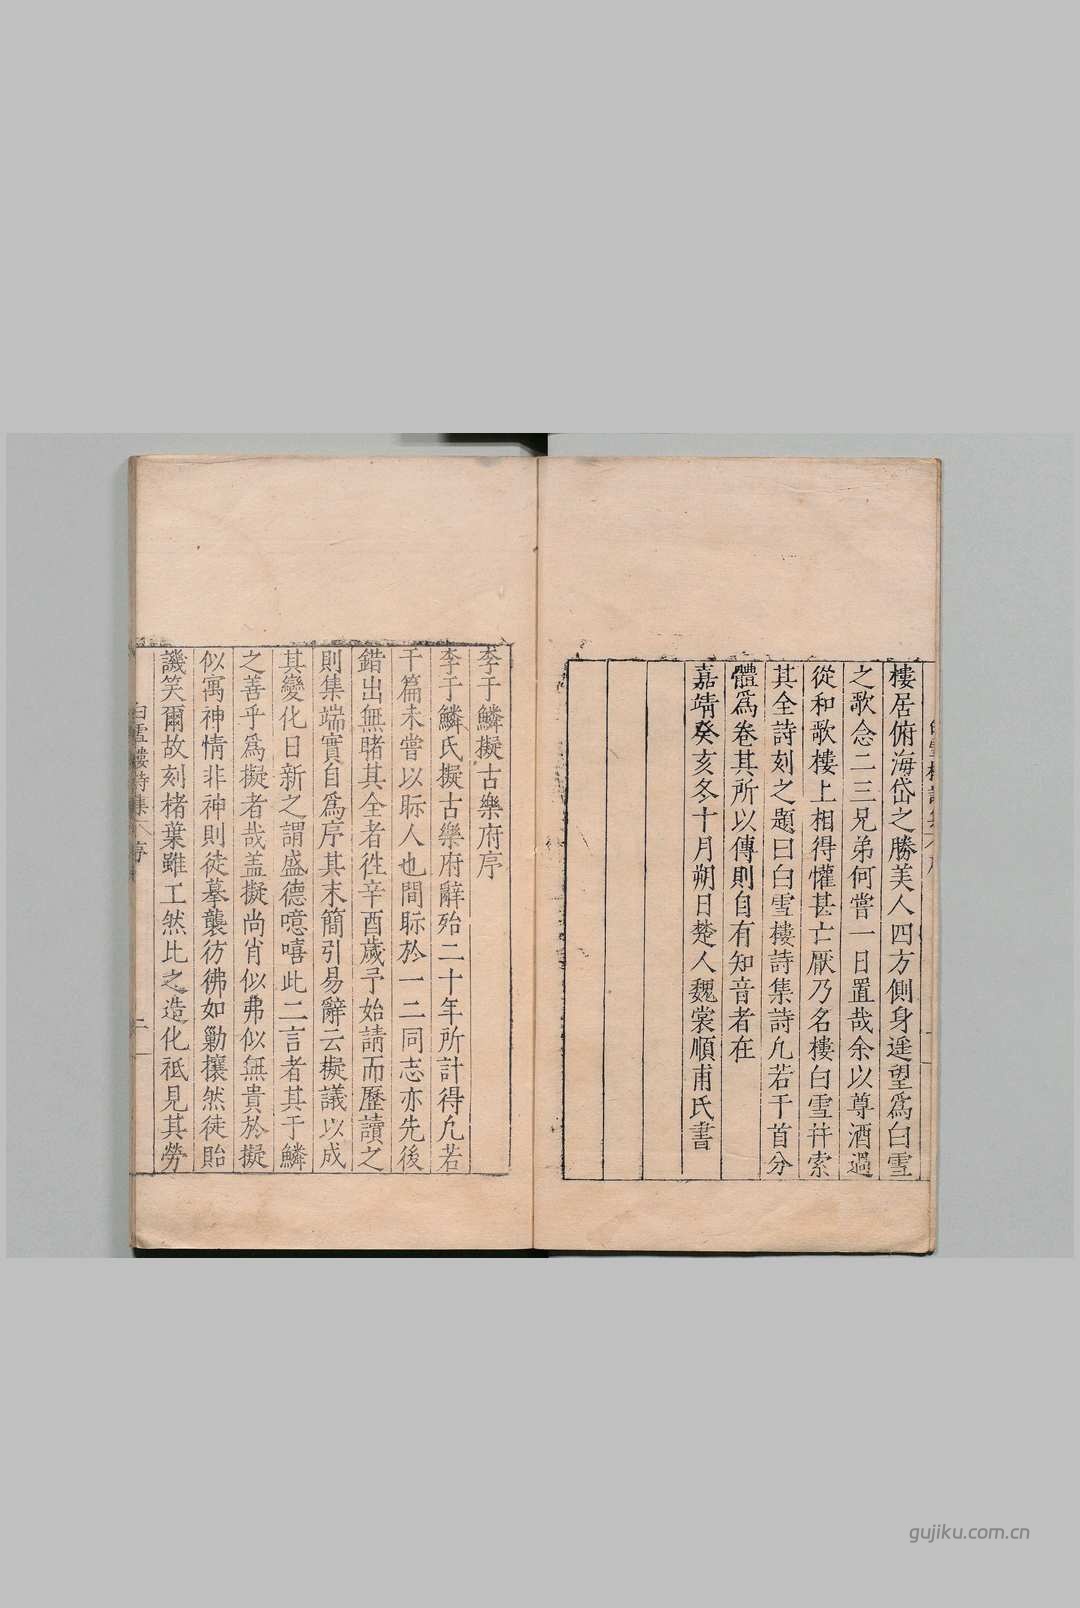 樓居俯海岱之勝美人四方側身遥望爲白雪
之歌念二三兄弟何嘗一日置哉余以尊酒過
從和歌樓上相得懽甚亡厭乃名樓白雪幷索
其全詩刻之題曰白雪樓詩集詩凢若干首分
體爲卷其所以傳則自有知音者在
嘉靖癸亥冬十月朔日楚人魏裳順甫氏書
李于鱗擬古樂府序
李于鱗氏擬古樂府辭殆二十年所計得凢若
干篇未嘗以眎人也間眎於一二同志亦先後
錯出無睹其全者徃辛酉歲予始請而歷讀之
則集端實自爲序其末簡引易辭云擬議以成
其變化日新之謂盛德噫嘻此二言者其于鱗
之善乎爲擬者哉盖擬尚肖似弗似無貴於擬
似寓神情非神則徒摹襲彷彿如勦攘然徒貽
譏笑爾故刻楮葉雖工然比之造化祗見其勞
白雪樓詩集 序
二
gujiku.com.cn